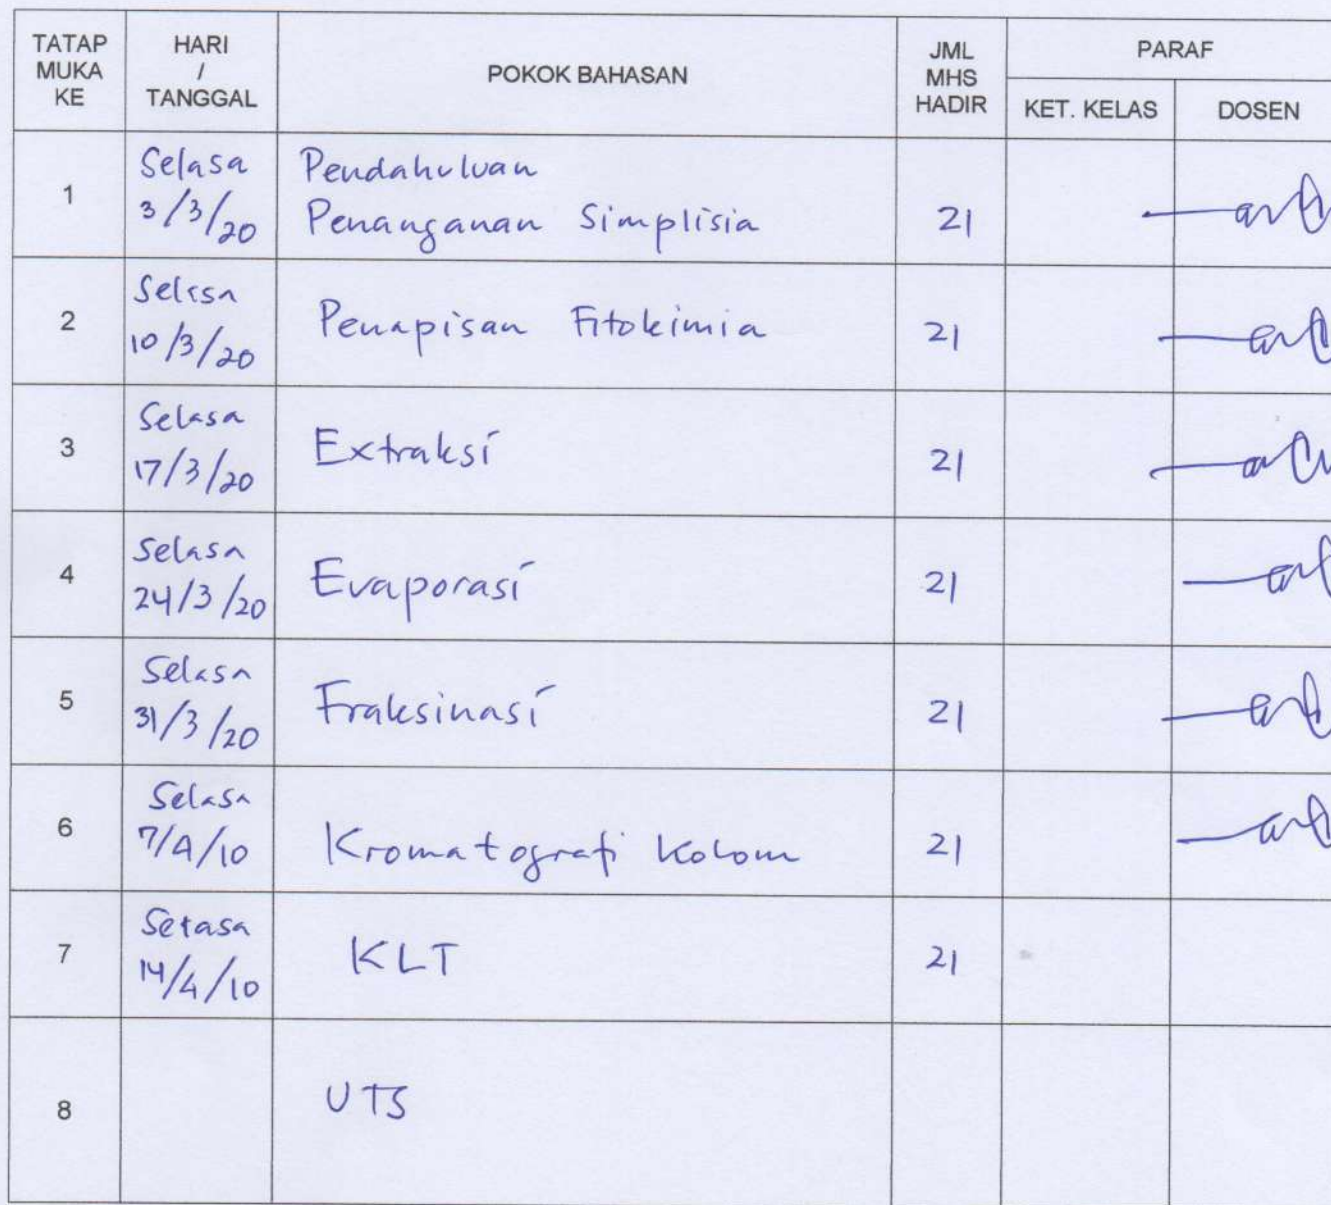 TATAP MUKA KE HARI / TANGGAL POKOK BAHASAN JML MHS HADIR PARAF
KET. KELAS DOSEN
1 Selasa 3/3/20 Pendahuluan Penanganan Simplisia 21
2 Selasa 10/3/20 Penapisan Fitokimia 21
3 Selasa 17/3/20 Extraksi 21
4 Selasa 24/3/20 Evaporasi 21
5 Selasa 31/3/20 Fraksinasi 21
6 Selasa 7/4/10 Kromatografi Kolom 21
7 Selasa 14/4/10 KLT 21
8 UTS